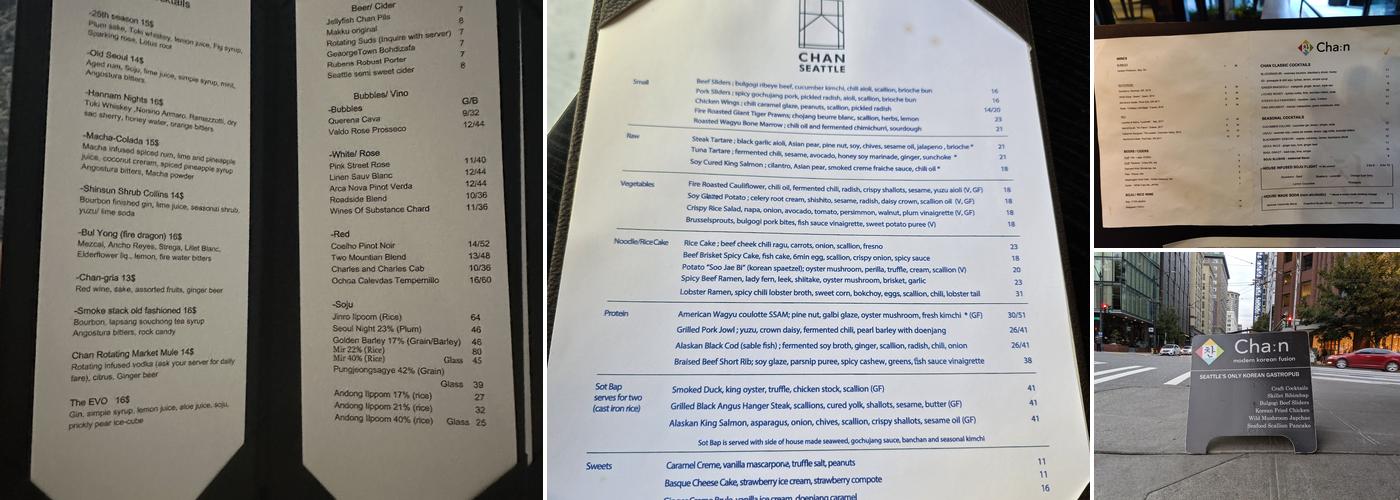 -25th season 15$
Plum sake, Toki whiskey, lemon juice, Fig syrup,
Sparkling rose, Lotus root
-Old Seoul 14$
Aged rum, Soju, lime juice, simple syrup, mint,
Angostura bitters.
-Hannam Nights 16$
Toki Whiskey, Nonino Amaro, Ramazzotti, dry
sac sherry, honey water, orange bitters
-Macha-Colada 15$
Macha infused spiced rum, lime and pineapple
juice, coconut cream, spiced pineapple syrup
Angostura bitters, Macha powder
-Shinsun Shrub Collins 14$
Bourbon finished gin, lime juice, seasonal shrub,
yuzu/ lime soda
-Bul Yong (fire dragon) 16$
Mezcal, Ancho Reyes, Strega, Lillet Blanc,
Elderflower liq., lemon, fire water bitters
-Chan-gria 13$
Red wine, sake, assorted fruits, ginger beer
-Smoke stack old fashioned 16$
Bourbon, lapsang souchong tea syrup
Angostura bitters, rock candy
Chan Rotating Market Mule 14$
Rotating infused vodka (ask your server for daily
fare), citrus, Ginger beer
The EVO 16$
Gin, simple syrup, lemon juice, aloe juice, soju,
prickly pear ice-cube
Beer/ Cider
Jellyfish Chan Pils 7
Makku original 8
Rotating Suds (Inquire with server) 7
GeaorgeTown Bohdizafa 7
Rubens Robust Porter 7
Seattle semi sweet cider 8
Bubbles/ Vino
-Bubbles G/B
Querena Cava 9/32
Valdo Rose Prosseco 12/44
-White/ Rose
Pink Street Rose 11/40
Linen Sauv Blanc 12/44
Arca Nova Pinot Verda 12/44
Roadside Blend 10/36
Wines Of Substance Chard 11/36
-Red
Coelho Pinot Noir 14/52
Two Mountian Blend 13/48
Charles and Charles Cab 10/36
Ochoa Calevdas Tempernillo 16/60
-Soju
Jinro Ippoom (Rice) 64
Seoul Night 23% (Plum) 46
Golden Barley 17% (Grain/Barley) 46
Mir 22% (Rice) 80
Mir 40% (Rice) Glass 45
Pungjeongsagye 42% (Grain)
Glass 39
Andong Ippom 17% (rice) 27
Andong Ippoom 21% (rice) 32
Andong Ipoom 40% (rice) Glass 25
CHAN
SEATTLE
Small
Beef Sliders ; bulgogi ribeye beef, cucumber kimchi, chili aioli, scallion, brioche bun 16
Pork Sliders ; spicy gochujang pork, pickled radish, aioli, scallion, brioche bun 16
Chicken Wings ; chili caramel glaze, peanuts, scallion, pickled radish 14/20
Fire Roasted Giant Tiger Prawns; chojang beurre blanc, scallion, herbs, lemon 23
Roasted Wagyu Bone Marrow ; chili oil and fermented chimichurri, sourdough 21
Raw
Steak Tartare ; black garlic aioli, Asian pear, pine nut, soy, chives, sesame oil, jalapeno , brioche * 21
Tuna Tartare ; fermented chili, sesame, avocado, honey soy marinade, ginger, sunchoke * 21
Soy Cured King Salmon ; cilantro, Asian pear, smoked creme fraiche sauce, chili oil * 18
Vegetables
Fire Roasted Cauliflower, chili oil, fermented chili, radish, crispy shallots, sesame, yuzu aioli (V, GF) 18
Soy Glazed Potato ; celery root cream, shishito, sesame, radish, daisy crown, scallion oil (V, GF) 18
Crispy Rice Salad, napa, onion, avocado, tomato, persimmon, walnut, plum vinaigrette (V, GF) 18
Brusselsprouts, bulgogi pork bites, fish sauce vinaigrette, sweet potato puree (V) 18
Noodle/Rice Cake
Rice Cake ; beef cheek chili ragu, carrots, onion, scallion, fresno 23
Beef Brisket Spicy Cake, fish cake, 6min egg, scallion, crispy onion, spicy sauce 18
Potato "Soo Jae Bi" (korean spaetzel); oyster mushroom, perilla, truffle, cream, scallion (V) 20
Spicy Beef Ramen, lady fern, leek, shiitake, oyster mushroom, brisket, garlic 23
Lobster Ramen, spicy chili lobster broth, sweet corn, bokchoy, eggs, scallion, chili, lobster tail 31
Protein
American Wagyu coulotte SSAM; pine nut, galbi glaze, oyster mushroom, fresh kimchi * (GF) 30/51
Grilled Pork Jowl ; yuzu, crown daisy, fermented chili, pearl barley with doenjang 26/41
Alaskan Black Cod (sable fish) ; fermented soy broth, ginger, scallion, radish, chili, onion 26/41
Braised Beef Short Rib; soy glaze, parsnip puree, spicy cashew, greens, fish sauce vinaigrette 38
Sot Bap
serves for two
(cast iron rice)
Smoked Duck, king oyster, truffle, chicken stock, scallion (GF) 41
Grilled Black Angus Hanger Steak, scallions, cured yolk, shallots, sesame, butter (GF) 41
Alaskan King Salmon, asparagus, onion, chives, scallion, crispy shallots, sesame oil (GF) 41
Sot Bap is served with side of house made seaweed, gochujang sauce, banchan and seasonal kimchi
Sweets
Caramel Creme, vanilla mascarpone, truffle salt, peanuts 11
Basque Cheese Cake, strawberry ice cream, strawberry compote 11
16
Cha:n
CHAN CLASSIC COCKTAILS
SEASONAL COCKTAILS
찬
Cha:n
modern korean fusion
SEATTLE'S ONLY KOREAN GASTROPUB
Craft Cocktails
Skillet Bibimbap
Bulgogi Beef Sliders
Korean Fried Chicken
Wild Mushroom Japchae
Seafood Scallion Pancake